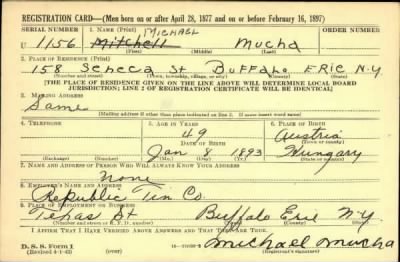 REGISTRATION CARD—(Men born on or after April 28, 1877 and on or before February 16, 1897)
SERIAL NUMBER 1. NAME (Print) MICHAEL ORDER NUMBER
U 1156 Mitchell Mucha
(First) (Middle) (Last)
2. PLACE OF RESIDENCE (Print)
158 Seneca St Buffalo Erie N.Y.
(Number and street) (Town, township, village, or city) (County) (State)
[THE PLACE OF RESIDENCE GIVEN ON THE LINE ABOVE WILL DETERMINE LOCAL BOARD
JURISDICTION; LINE 2 OF REGISTRATION CERTIFICATE WILL BE IDENTICAL]
3. MAILING ADDRESS
Same
[Mailing address if other than place indicated on line 2. If same insert word same]
4. TELEPHONE 5. AGE IN YEARS 6. PLACE OF BIRTH
49 Austria
DATE OF BIRTH (Town or county)
Jan 8 1893 Hungary
(Exchange) (Number) (Mo.) (Day) (Yr.) (State or country)
7. NAME AND ADDRESS OF PERSON WHO WILL ALWAYS KNOW YOUR ADDRESS
None
8. EMPLOYER'S NAME AND ADDRESS
Republic Tin Co.
9. PLACE OF EMPLOYMENT OR BUSINESS
Texas St Buffalo Erie N-Y
(Number and street or R. F. D. number) (Town) (County) (State)
I AFFIRM THAT I HAVE VERIFIED ABOVE ANSWERS AND THAT THEY ARE TRUE.
D. S. S. Form 1
(Revised 4-1-42) (over) Michael Mucha